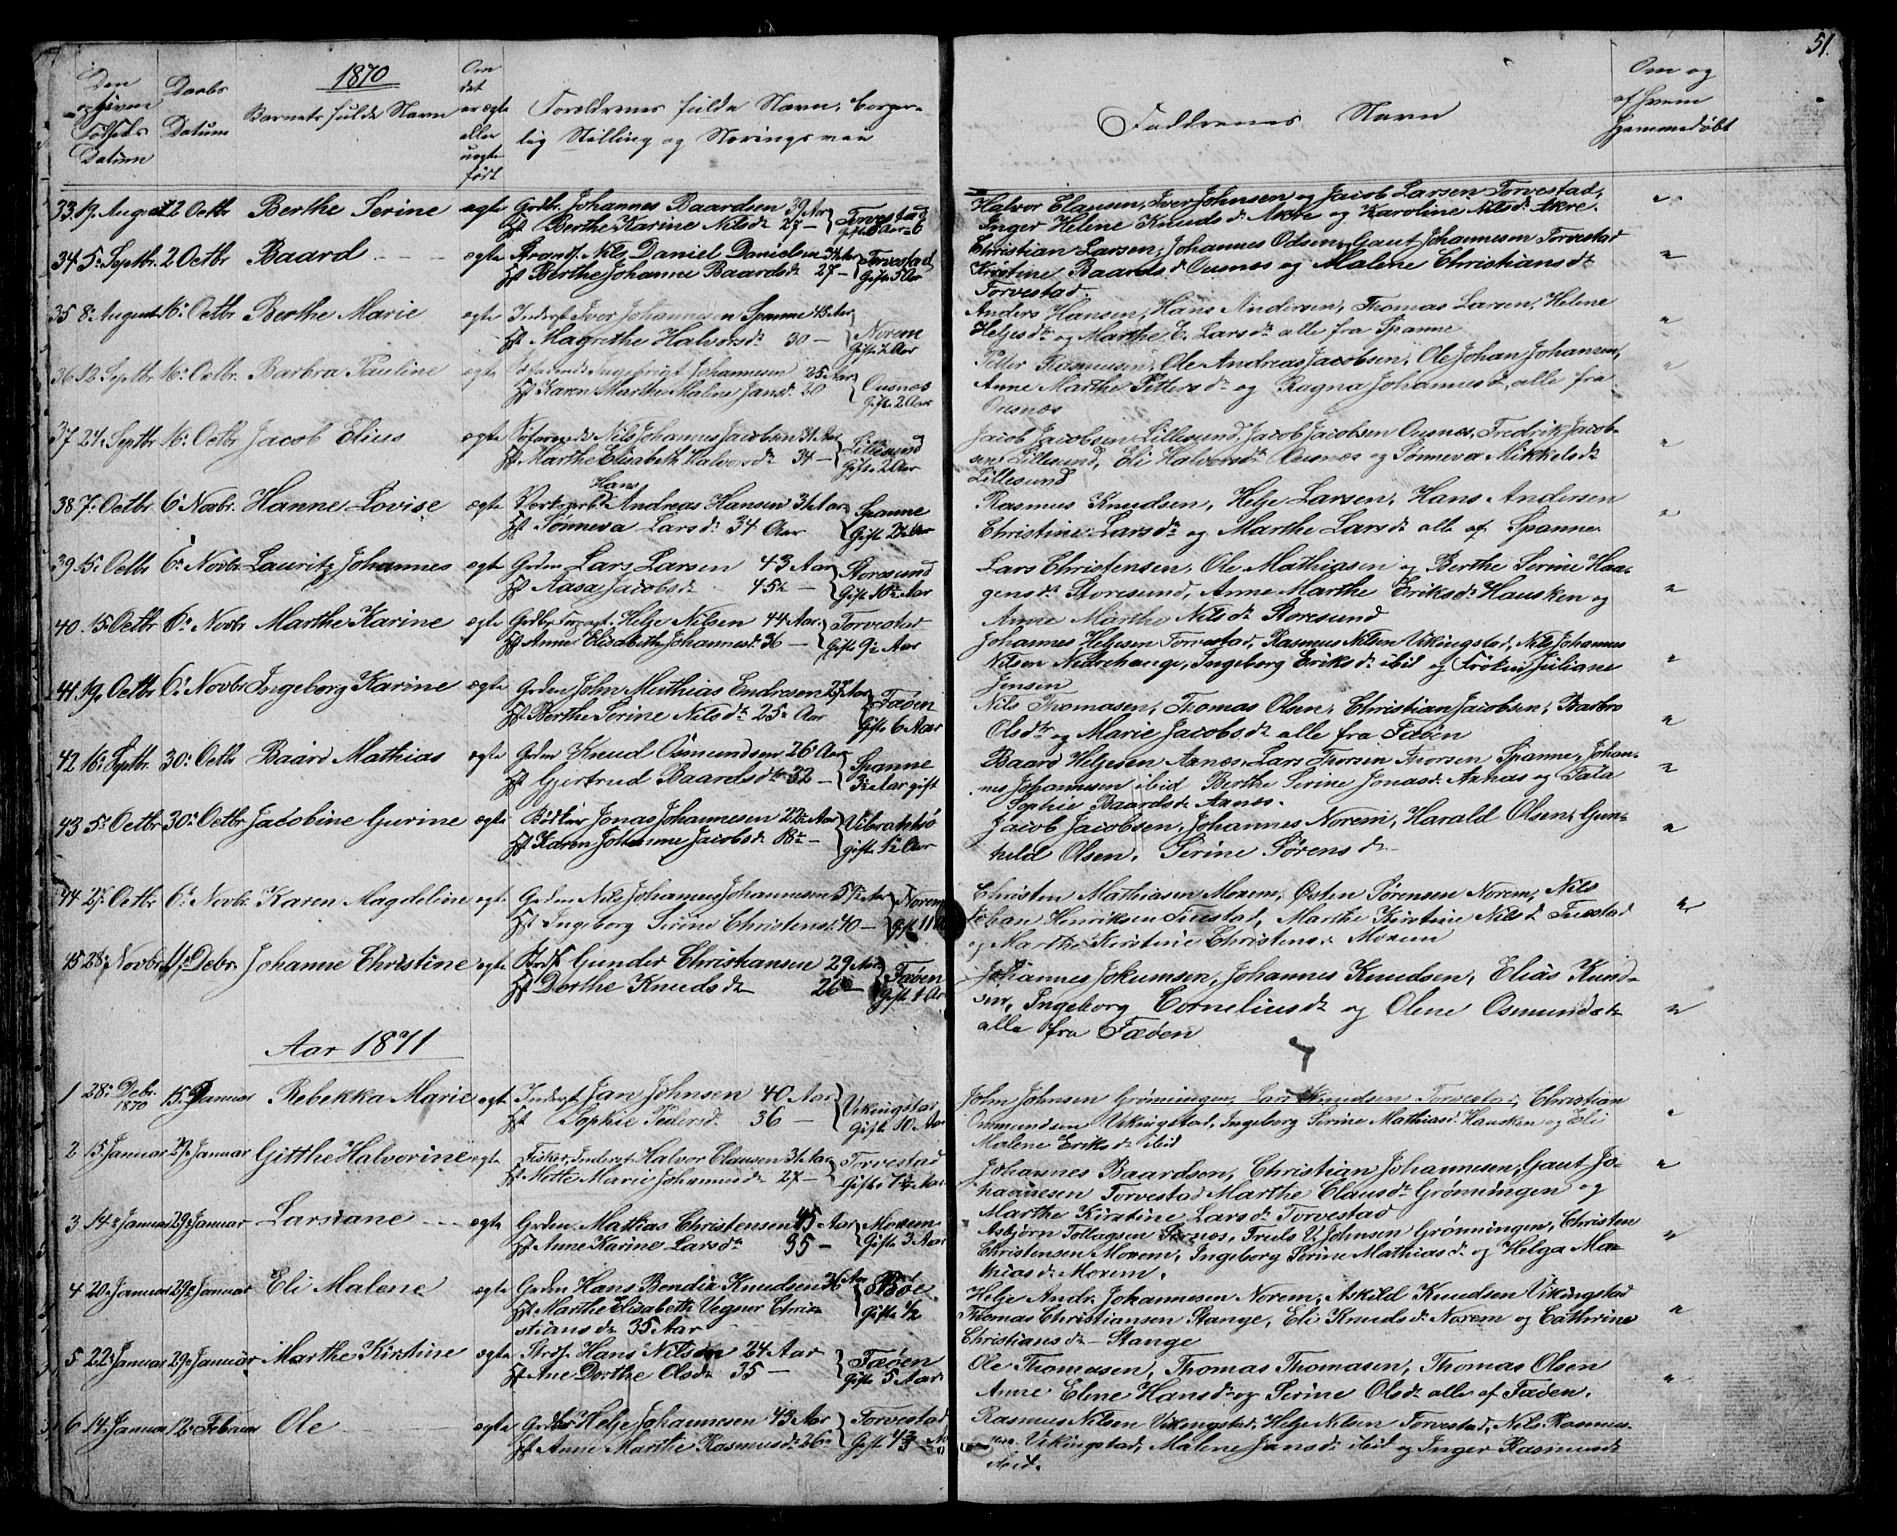 51.
1870
Den opgiven Fødsels Datum
Daabs Datum
Barnets fulde Navn
Om det er ægte eller uægte født
Forældrenes fulde Navn, borger-
lig Stilling og Næringsvei
Faddrenes Navn
Om og af hvem hjemmedøbt
33. 19. August 2 Octbr Berthe Serine ægte Gdbr. Johannes Baardsen 39 Aar Torvestad
Hst Berthe Karine Nilsd. 27 –
Halvor Clausen, Iver Johnsen og Jacob Larsen Torvestad,
Inger Helene Knudsd. Akre og Karoline Nilsd. Akre.
34 5. Septbr. 2 Octbr Baard ægte Strands. Nils Daniel Danielsen Torvestad
Hst Berthe Johanne Baardsd. 27 – Gifte 5 Aar
Christian Larsen, Johannes Odsen, Gaut Johannesen Torvestad
Kristine Baardsd. Ousnes og Malene Christiansd.
Torvestad.
35 8. August 16. Octbr Berthe Marie ægte Inderst Iver Johannesen Spanne 48 Aar Norem
Hst. Magrethe Halvorsd. 30 – Gifte 2 Aar
Anders Hansen, Hans Andersen, Thomas Larsen, Helene
Helgesd. og Marthe E. Larsd. alle fra Spanne
36 12 Septbr 16. Octbr. Barbra Pauline ægte Ingebrigt Johannesen 25 Aar Ousnes
Hst Karen Marthe Malene Jansd. 20 Gifte 2 Aar
Petter Rasmussen, Ole Andreas Jacobsen, Ole Johan Johansen,
Anne Marthe Pettersd. og Ragna Johannesd. alle fra
Ousnes
37 24. Septbr 16. Octbr Jacob Elius ægte Søfarende Nils Johannes Jacobsen 31 Aar Lillesund
Hst Marthe Elisabeth Halvorsd. 34 – Gifte 2 Aar
Jacob Jacobsen Lillesund, Jacob Jacobsen Ousnes, Fredrik Jacob-
sen Lillesund, Eli Halvorsd. Ousnes og Sønneva Mikkelsd.
Lillesund
38 7. Octbr. 6. Novbr. Hanne Lovise ægte Hans Andreas Hansen 31 Aar Spanne
Hst. Sønneva Larsd. 34 Aar
Rasmus Knudsen, Helge Larsen, Hans Andersen
Christine Larsd. og Marthe Larsd. alle af Spanne.
39 15. Octbr 6. Novbr. Lauritz Johannes ægte Grden Lars Larsen 43 Aar Storesund
Hst Aasa Jacobsd. 45 – Gifte 10 Aar
Lars Christensen, Ole Mathiasen og Berthe Serine Haa-
gensd. Storesund, Anne Marthe Eriksd. Hausken og
Anne Marthe Nilsd. Storesund
40. 15 Octbr 6. Novbr Marthe Karine ægte Helge Nilsen 44 Aar. Torvestad
Hst Anne Elisabeth Johannesd. 36 – Gifte 9 Aar
Johannes Helgesen Torvestad, Rasmus Nilsen Vikingstad, Nils Johannes
Nilsen Nedrehauge, Ingeborg Eriksd. ibid og Frøken Juliane
Jensen
41. 19. Octbr 6. Novbr Ingeborg Karine ægte Grden John Mathias Endresen 27 Aar Fæøen
Hst Berthe Serine Nilsd. 25 Aar Gifte 6 Aar
Nils Thomasen, Thomas Olsen, Christian Jacobsen, Barbro
Olsd. og Marie Jacobsd. alle fra Fæøen
42 16. Septbr. 30. Octb Baard Mathias ægte Grden Knud Osmundsen 26 Aar Spanne
Hst Gjertrud Baardsd. 32 –
Baard Helgesen Aanes, Lars Thorsen Thorsen Spanne, Johan-
nes Johannesen ibid Berthe Serine Jonasd. Aanas og Tala
Sophie Baardsd. Aanes.
43 5. Octbr 30. Octbr Jacobine Gurine ægte Bødker Jonas Johannesen 22 Aar
Hst Karen Johanne Jacobsd.
Jacob Jacobsen, Johannes Norem, Harald Olsen, Gun-
hild Olsen, Serine Sørensd.
44 27. Octbr 6. Novb. Karen Magdeline ægte Grden Nils Johannes Johannesen Norem
Hst Ingeborg Serine Christensd. 40 –
Christen Mathiasen Morem, Østen Sørensen Norem, Nils
Johan Henriksen Tuestad, Marthe Kirstine Nilsd. Tuestad
og Marthe Kirstine Christensd. Morem
45 28. Novbr. Debr. Johanne Christine ægte Gunder Christiansen 29 Aar Fæøen
Hst Dorthe Knudsd. 26 –
Johannes Jokumsen, Johannes Knudsen, Elias Knud-
sen, Ingeborg Corneliusd. og Olene Osmundsd.
alle fra Fæøen
Aar 1871
1 28. Debr. 1870 15. Januar Rebekka Marie ægte Inderst Jan Johnsen 40 Aar Vikingstad
Hst Sophie Pedersd. 36 – Gifte 10 Aar
John Johnsen Grønningen, Lars Knudsen Torvestad, Christian
Osmundsen Vikingstad, Ingeborg Serine Mathiasd. Hausken og Eli
Malene Eriksd. ibid
2 15. Januar 29. Januar Gitthe Halvorine ægte Fisker, Inderst Halvor Clausen 31 Aar Torvestad
Hst Mette Marie Johannesd. 27 –
Johannes Baardsen, Christian Johannesen, Gaut Jo-
hannesen Torvestad Marthe Clausd. Grønningen og
Marthe Kirstine Larsd. Torvestad
3 14. Januar 29. Januar Larsiane ægte Grden. Mathias Christensen 45 Aar Morem
Hst Anne Karine Larsd. 35 – Gifte 3 Aar
Asbjørn Tollagsen, Johnsen Grønningen, Christen
Christensen Morem, Ingeborg Serine Mathiasd. og Helga Ma-
thiasd. Morem.
4 20. Januar 29. Januar Eli Malene ægte Grden Hans Bendix Knudsen 36 Aar Bøe
Hst Marthe Elisabeth Vegner Chri- Gifte 1/2
stiansd. 35 Aar
Helge Andr. Johannesen Norem, Askild Knudsen Vikingstad
Thomas Christiansen Stange, Eli Knudsd. Norem og Cathrine
Christiansd. Stange
5 22. Januar 29. Januar Marthe Kirstine ægte Strds. Hans Nilsen 24 Aar Fæøen
Hst Ane Dorthe Olsd. 35 – Gifte 5 Aar
Ole Thomasen, Thomas Thomasen, Thomas Olsen
Anne Eline Hansd. og Serine Olsd. alle af Fæøen.
6 14. Januar 12. Februar Ole ægte Grdbr Helge Johannesen 43 Aar Torvestad
Hst Anne Marthe Rasmusd. 26
Rasmus Nilsen Vikingstad, Helge Nilsen Torvestad, Nils Rasmus-
sen Vikingstad, Malene Jansd. ibid og Inger Rasmusd.
ibid.